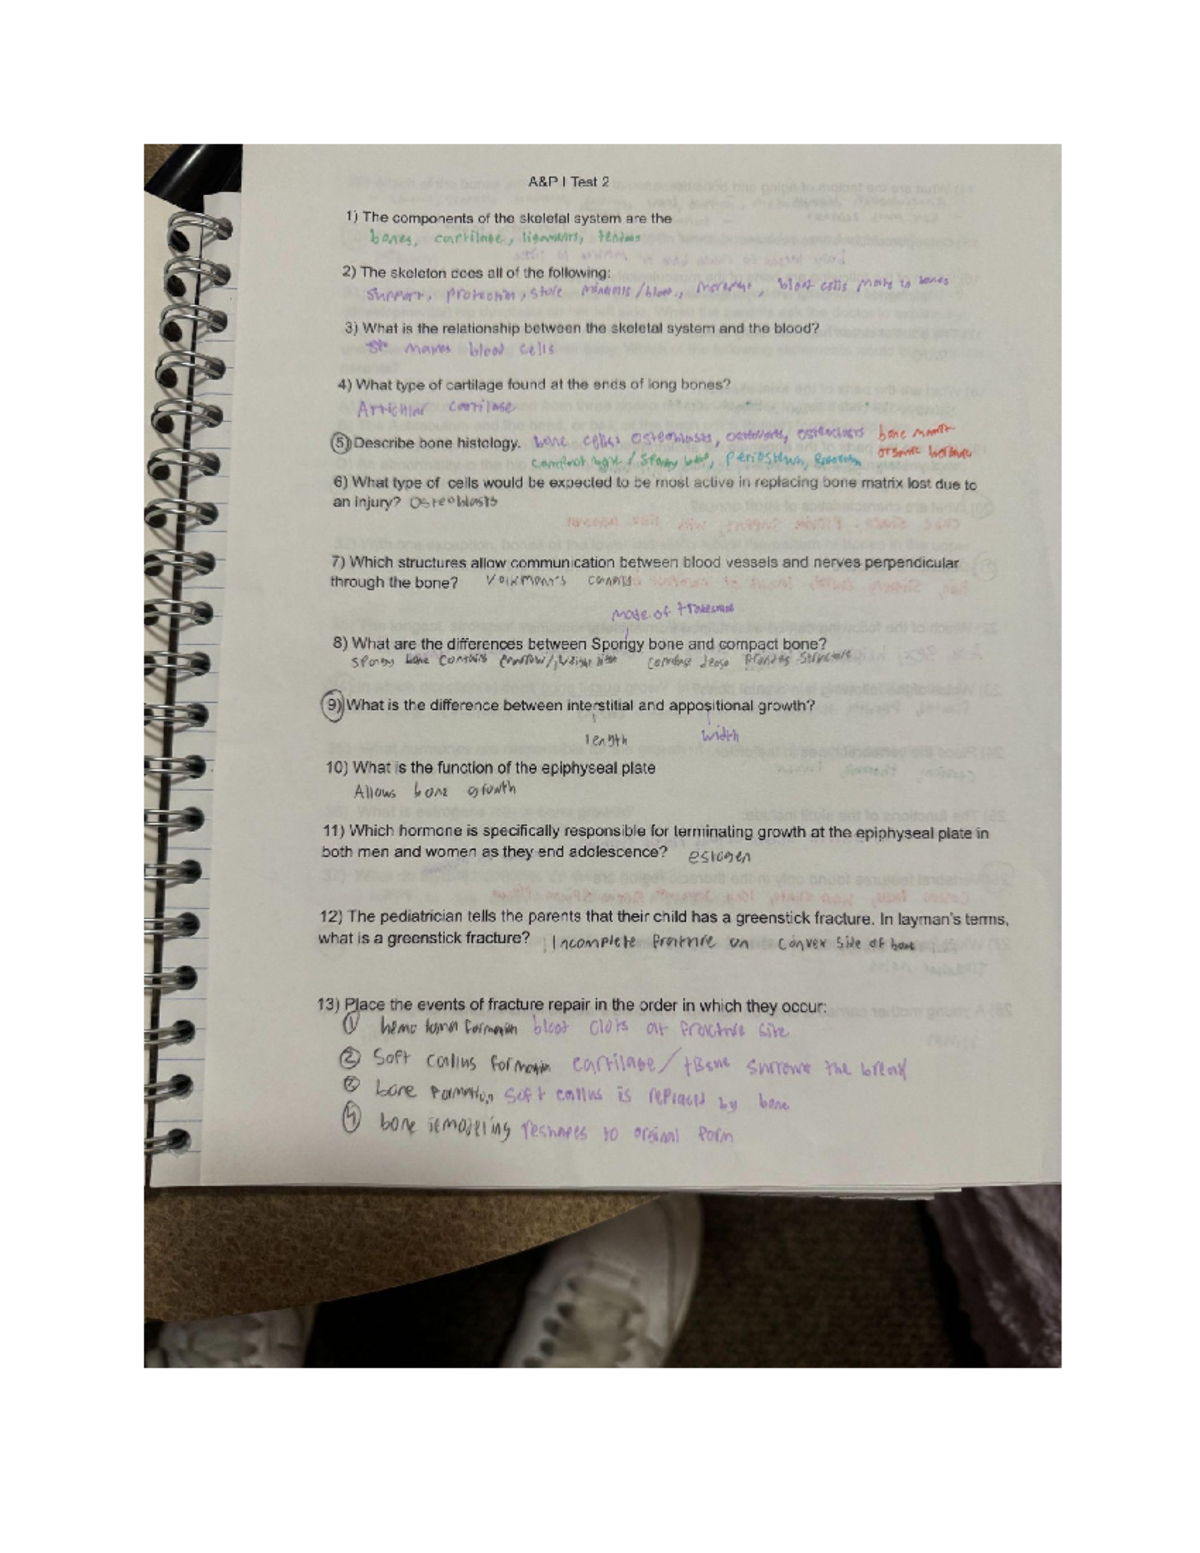 A&P I Test 2
1) The components of the skeletal system are the
bones, cartilage, ligaments, tendons
2) The skeleton does all of the following:
support, protection, store minerals/blood, movement, blood cells made in bones
3) What is the relationship between the skeletal system and the blood?
makes blood cells
4) What type of cartilage found at the ends of long bones?
Articular cartilage
5) Describe bone histology. bone cells osteoblasts, osteocytes, osteoclasts bone matrix
compact bone / spongy bone, periosteum,
6) What type of cells would be expected to be most active in replacing bone matrix lost due to
an injury? Osteoblasts
7) Which structures allow communication between blood vessels and nerves perpendicular
through the bone? Volkmann's canals
made of trabeculae
8) What are the differences between Spongy bone and compact bone?
spongy bone contains marrow/ compact dense provides structure
9) What is the difference between interstitial and appositional growth?
length width
10) What is the function of the epiphyseal plate
Allows bone growth
11) Which hormone is specifically responsible for terminating growth at the epiphyseal plate in
both men and women as they end adolescence? estogen
12) The pediatrician tells the parents that their child has a greenstick fracture. In layman's terms,
what is a greenstick fracture? Incomplete fracture on convex side of bone
13) Place the events of fracture repair in the order in which they occur:
① hematoma formation blood clots at fracture site
② Soft callus formation cartilage/ tissue surround the break
③ bone formation soft callus is replaced by bone
④ bone remodeling reshapes to original form